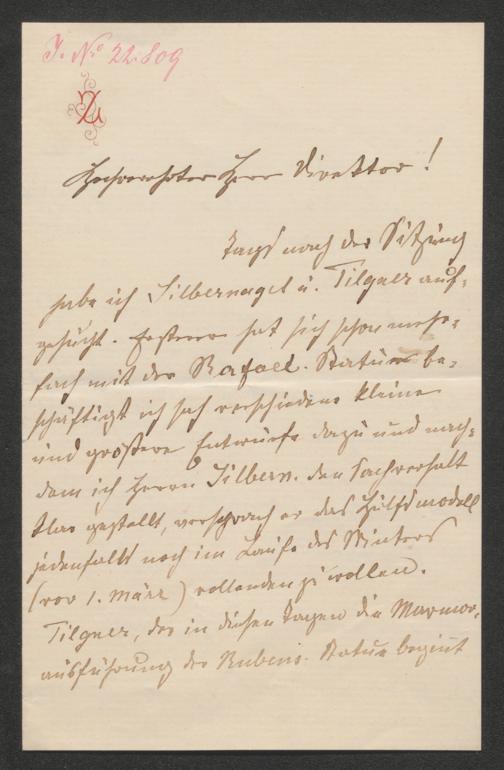 J. No 22.809
Hochverehrter Herr Direktor!
Tags nach der Sitzung
habe ich Silbernagel u. Tilgner auf-
gesucht. Ersterer hat sich schon mehr-
fach mit der Rafael-Statue be-
schäftigt ich sah verschiedene kleine
und größere Entwürfe dazu und nach-
dem ich Herrn Silbern. den Sachverhalt
klar gestellt, versprach er das Hülfsmodell
jedenfalls noch im Laufe des Winters
(vor 1. März) vollenden zu wollen.
Tilgner, der in diesen Tagen die Marmor-
ausführung der Rubens-Statue beginnt